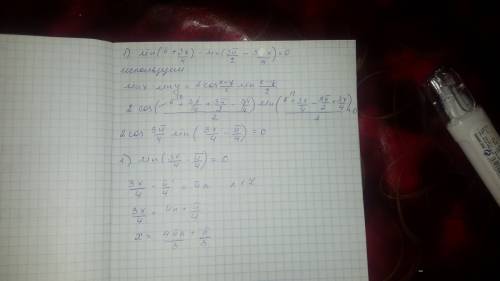 1) sin(π + 3x/4) - sin(3π/2 - 3x/4) = 0
используем
sinx siny = 2cos x+y/2 sin x-y/2
2 cos(π + 3x/4 + 3π/2 - 3x/4)/2 sin(π + 3x/4 - 3π/2 + 3x/4)/2 = 0
2 cos 5π/4 sin(3x/4 - π/4) = 0
1) sin(3x/4 - π/4) = 0
3x/4 - π/4 = πn n ∈ Z
3x/4 = πn + π/4
x = 4πn/3 + π/3